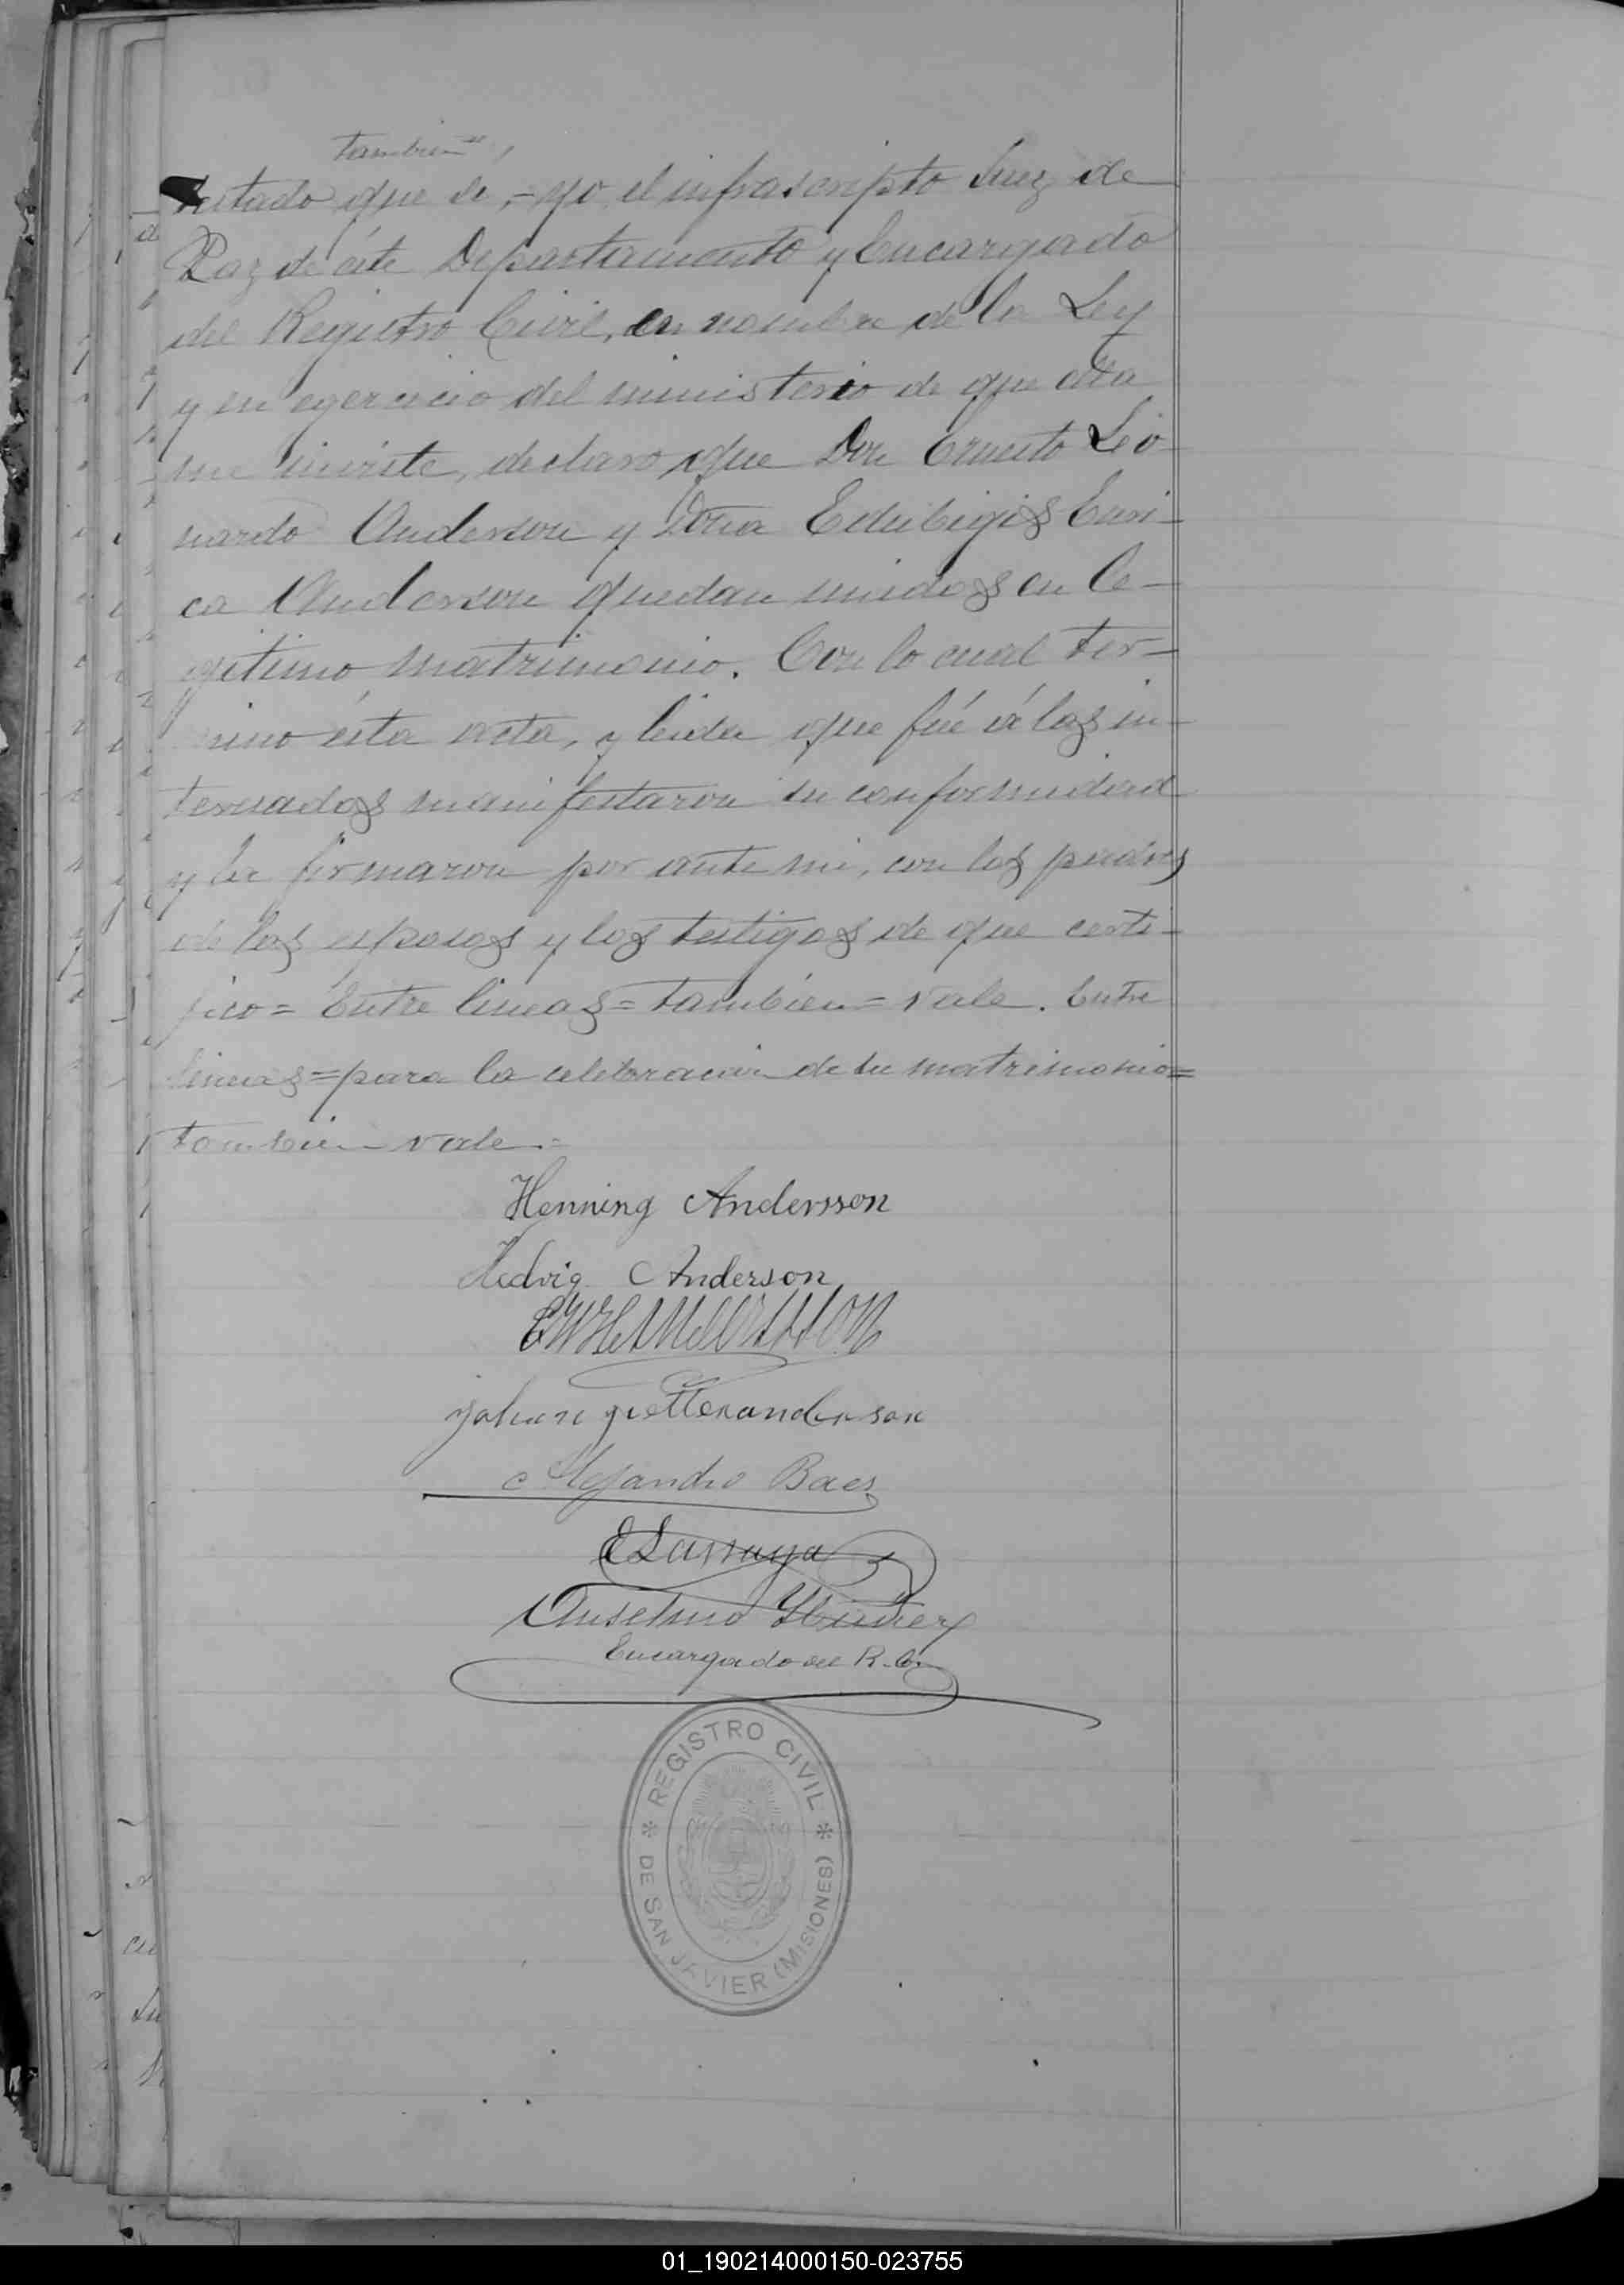 tambien
testado que se, = yo el infrascripto Juez de
Paz de éste Departamento y Encargado
del Registro Civil, en nombre de la Ley
y en egercicio del ministerio de que esta
me inviste, declaro que Don Ernesto Leo-
nardo Anderson y Doña Edubigis Euri-
ca Anderson quedan unidos en le-
gitimo matrimonio. Con lo cual ter-
mino ésta acta, y leida que fué á los in-
teresados manifestaron su conformidad
y la firmaron por ante mi, con los padres
de los esposos y los testigos de que certi-
fico = Entre lineas = tambien = vale. Entre
lineas = para la celebracion de su matrimonio =
tambien vale. =
Henning Andersson
Hedvig Anderson
Johan petter anderson
Alejandro Baes
Anselmo
Encargado del R. C.
REGISTRO CIVIL
DE SAN JAVIER (MISIONES)
01_190214000150-023755